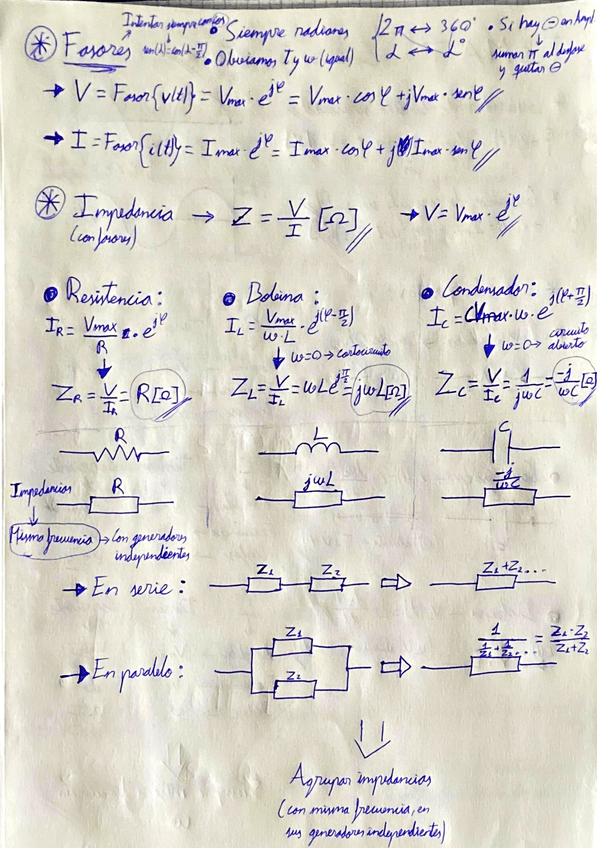 Intentar siempre con cos
Fasores
sen(α)=cos(α-π/2)
• Siempre radianes
• Obviamos T y ω (igual)
2π ↔ 360°
α ↔ α°
• Si hay ⊖ en Ampl.
sumar π al desfase
y quitar ⊖
→ V = Fasor{v(t)} = Vmax · e^jφ = Vmax · cosφ + jVmax · senφ
→ I = Fasor{i(t)} = Imax · e^jφ = Imax · cosφ + j Imax · senφ
Impedancia → Z = V/I [Ω] → V = Vmax · e^jφ
(con fasores)
• Resistencia:
I_R = Vmax/R · e^jφ
Z_R = V/I_R = R[Ω]
R
R
• Bobina:
I_L = Vmax/ω·L · e^j(φ-π/2)
ω=0 → cortocircuito
Z_L = V/I_L = ωLe^jπ/2 = jωL[Ω]
L
jωL
• Condensador:
I_C = CVmax · ω · e^j(φ+π/2)
ω=0 → circuito
abierto
Z_C = V/I_C = 1/jωC = -j/ωC [Ω]
C
-j/ωC
Impedancias
Misma frecuencia → Con generadores
independientes
→ En serie: Z₁ Z₂ ⇒ Z₁+Z₂...
→ En paralelo: Z₁ Z₂ ⇒ 1/(1/Z₁+1/Z₂...) = Z₁·Z₂/Z₁+Z₂
Agrupar impedancias
(con misma frecuencia, en
sus generadores independientes)